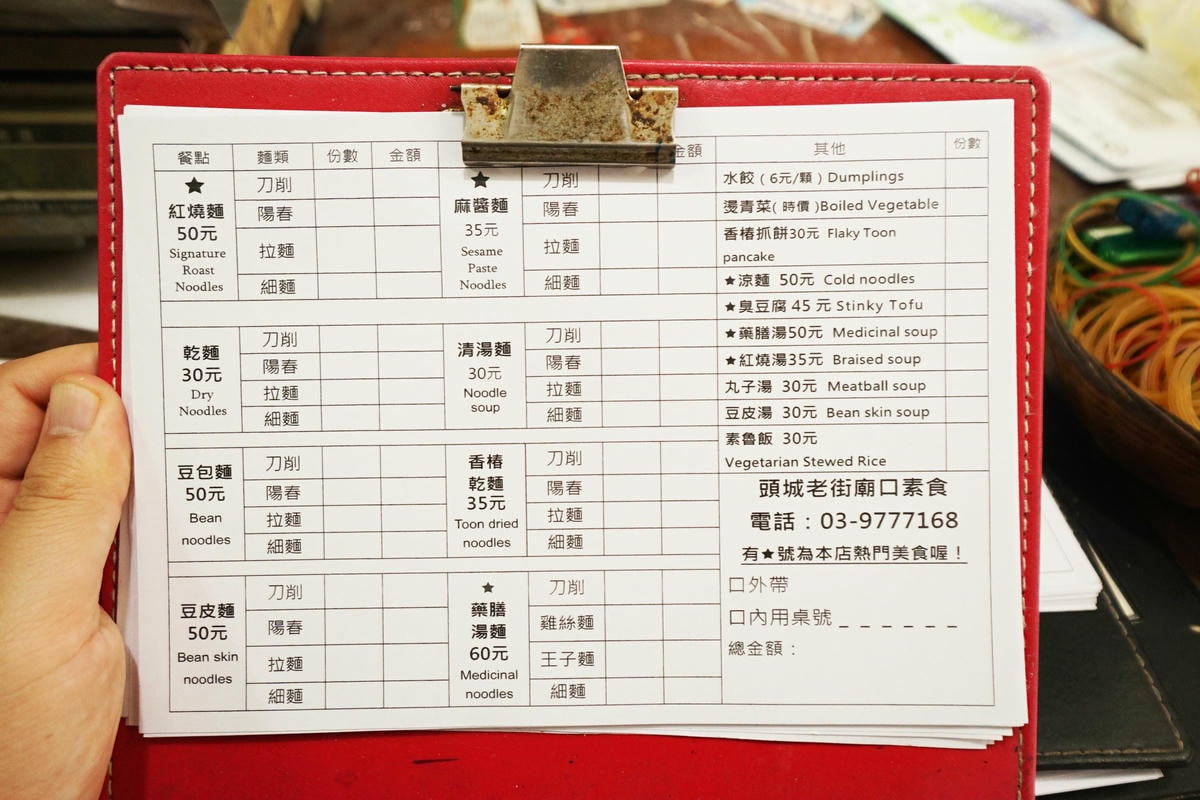 餐點 麵類 份數 金額
★
紅燒麵
50元
Signature
Roast
Noodles
刀削
陽春
拉麵
細麵
乾麵
30元
Dry
Noodles
刀削
陽春
拉麵
細麵
豆包麵
50元
Bean
noodles
刀削
陽春
拉麵
細麵
豆皮麵
50元
Bean skin
noodles
刀削
陽春
拉麵
細麵
金額
★
麻醬麵
35元
Sesame
Paste
Noodles
刀削
陽春
拉麵
細麵
清湯麵
30元
Noodle
soup
刀削
陽春
拉麵
細麵
香椿
乾麵
35元
Toon dried
noodles
刀削
陽春
拉麵
細麵
★
藥膳
湯麵
60元
Medicinal
noodles
刀削
雞絲麵
王子麵
細麵
其他 份數
水餃（6元/顆）Dumplings
燙青菜(時價)Boiled Vegetable
香椿抓餅30元 Flaky Toon
pancake
★涼麵 50元 Cold noodles
★臭豆腐 45 元 Stinky Tofu
★藥膳湯50元 Medicinal soup
★紅燒湯35元 Braised soup
丸子湯 30元 Meatball soup
豆皮湯 30元 Bean skin soup
素魯飯 30元
Vegetarian Stewed Rice
頭城老街廟口素食
電話：03-9777168
有★號為本店熱門美食喔！
口外帶
口內用桌號 _ _ _ _ _ _
總金額：